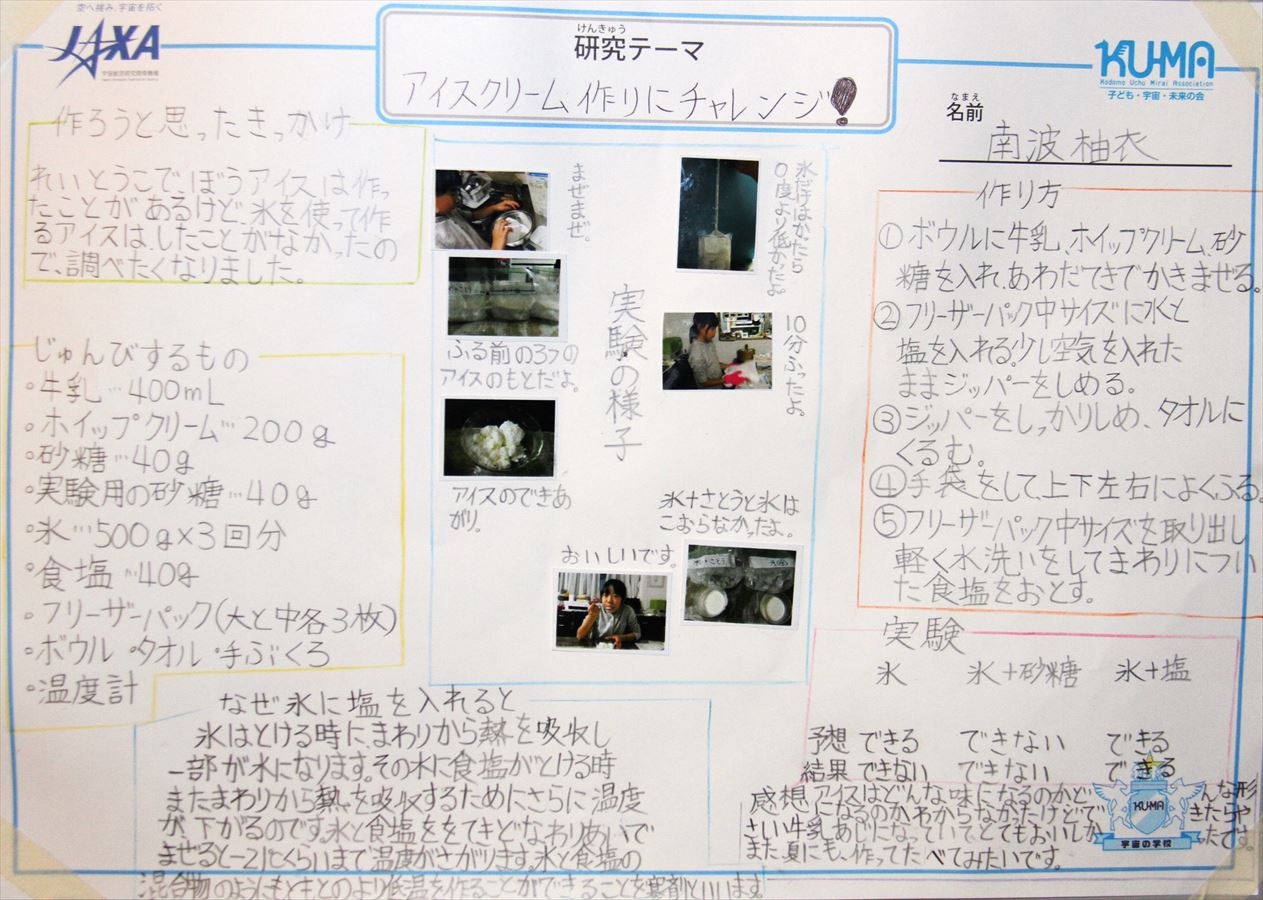 空へ挑み、宇宙を拓く
JAXA
宇宙航空研究開発機構
けんきゅう
研究テーマ
アイスクリーム作りにチャレンジ!
KUMA
Kodomo Uchu Mirai Association
子ども・宇宙・未来の会
なまえ
名前
南波柚衣
作ろうと思ったきっかけ
れいとうこで、ぼうアイスは作っ
たことがあるけど、氷を使って作
るアイスは、したことがなかったの
で、調べたくなりました。
じゅんびするもの
・牛乳…400mL
・ホイップクリーム…200g
・砂糖…40g
・実験用の砂糖…40g
・氷…500g×3回分
・食塩…40g
・フリーザーパック(大と中各3枚)
・ボウル・タオル・手ぶくろ
・温度計
まぜまぜ。
ふる前の3つの
アイスのもとだよ。
アイスのできあ
がり。
おいしいです。
実験の様子
氷だけはかったら
0度より低かったよ。
10分ふったよ。
氷+さとうと氷は
こおらなかったよ。
作り方
①ボウルに牛乳、ホイップクリーム、砂
糖を入れ、あわだてきでかきまぜる。
②フリーザーパック中サイズに氷と
塩を入れる。少し空気を入れた
ままジッパーをしめる。
③ジッパーをしっかりしめ、タオルに
くるむ。
④手袋をして、上下左右によくふる。
⑤フリーザーパック中サイズを取り出し
軽く水洗いをしてまわりについ
た食塩をおとす。
実験
氷 氷+砂糖 氷+塩
予想 できる できない できる
結果 できない できない できる
感想 アイスはどんな味になるのかど んな形
になるのかわからなかったけどで きたらや
さい牛乳あじになっていてとてもおいしか ったです。
また夏にも、作ってたべてみたいです。
KU-MA
宇宙の学校
なぜ氷に塩を入れると
氷はとける時に、まわりから熱を吸収し
一部が水になります。その水に食塩がとける時
またまわりから熱を吸収するためにさらに温度
が下がるのです。氷と食塩ををてきどなわりあいで
まぜると-21℃くらいまで温度がさがります。氷と食塩の
混合物のように、もともとのより低温を作ることができることを寒剤といいます。